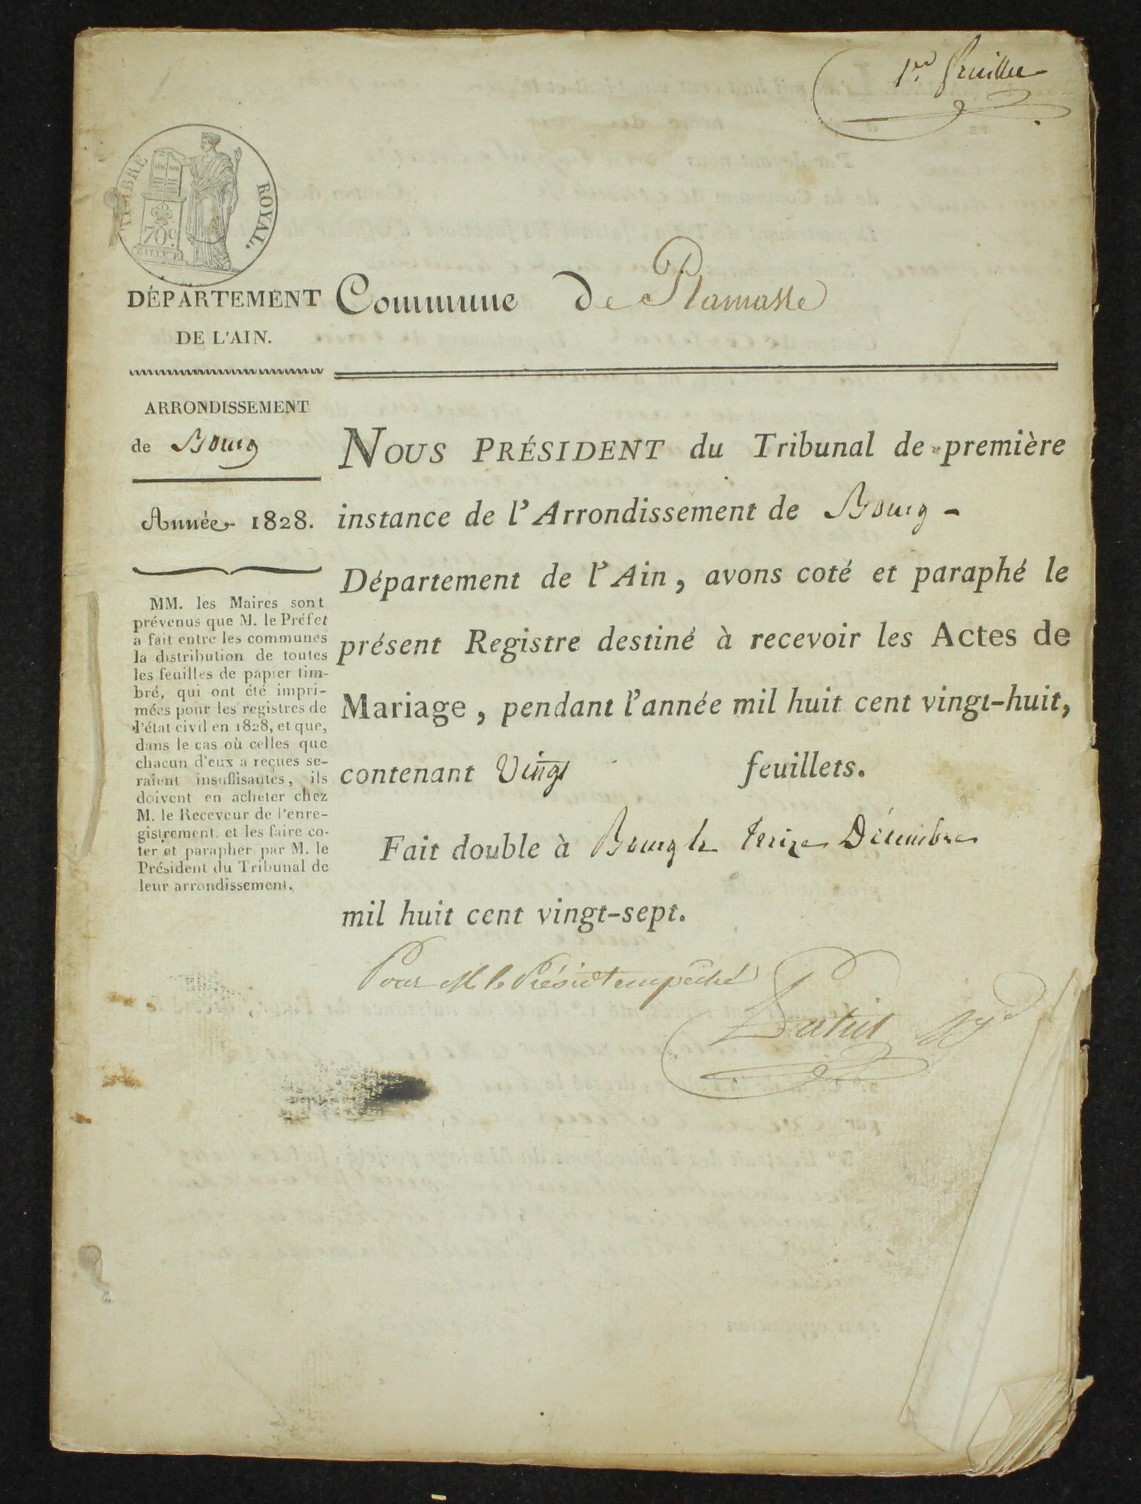 1.re feuillet
TIMBRE ROYAL.
70c.
DÉPARTEMENT
DE L'AIN.
Commune de Ramasse
ARRONDISSEMENT
de Bourg
Année 1828.
MM. les Maires sont
prévenus que M. le Préfet
a fait entre les communes
la distribution de toutes
les feuilles de papier tim-
bré, qui ont été impri-
mées pour les registres de
l'état civil en 1828, et que,
dans le cas où celles que
chacun d'eux a reçues se-
raient insuffisantes, ils
doivent en acheter chez
M. le Receveur de l'enre-
gistrement, et les faire co-
ter et parapher par M. le
Président du Tribunal de
leur arrondissement.
NOUS PRÉSIDENT du Tribunal de première
instance de l'Arrondissement de Bourg -
Département de l'Ain, avons coté et paraphé le
présent Registre destiné à recevoir les Actes de
Mariage, pendant l'année mil huit cent vingt-huit,
contenant Vingt feuillets.
Fait double à Bourg le treize Décembre
mil huit cent vingt-sept.
Pour M. le Présidt empêché